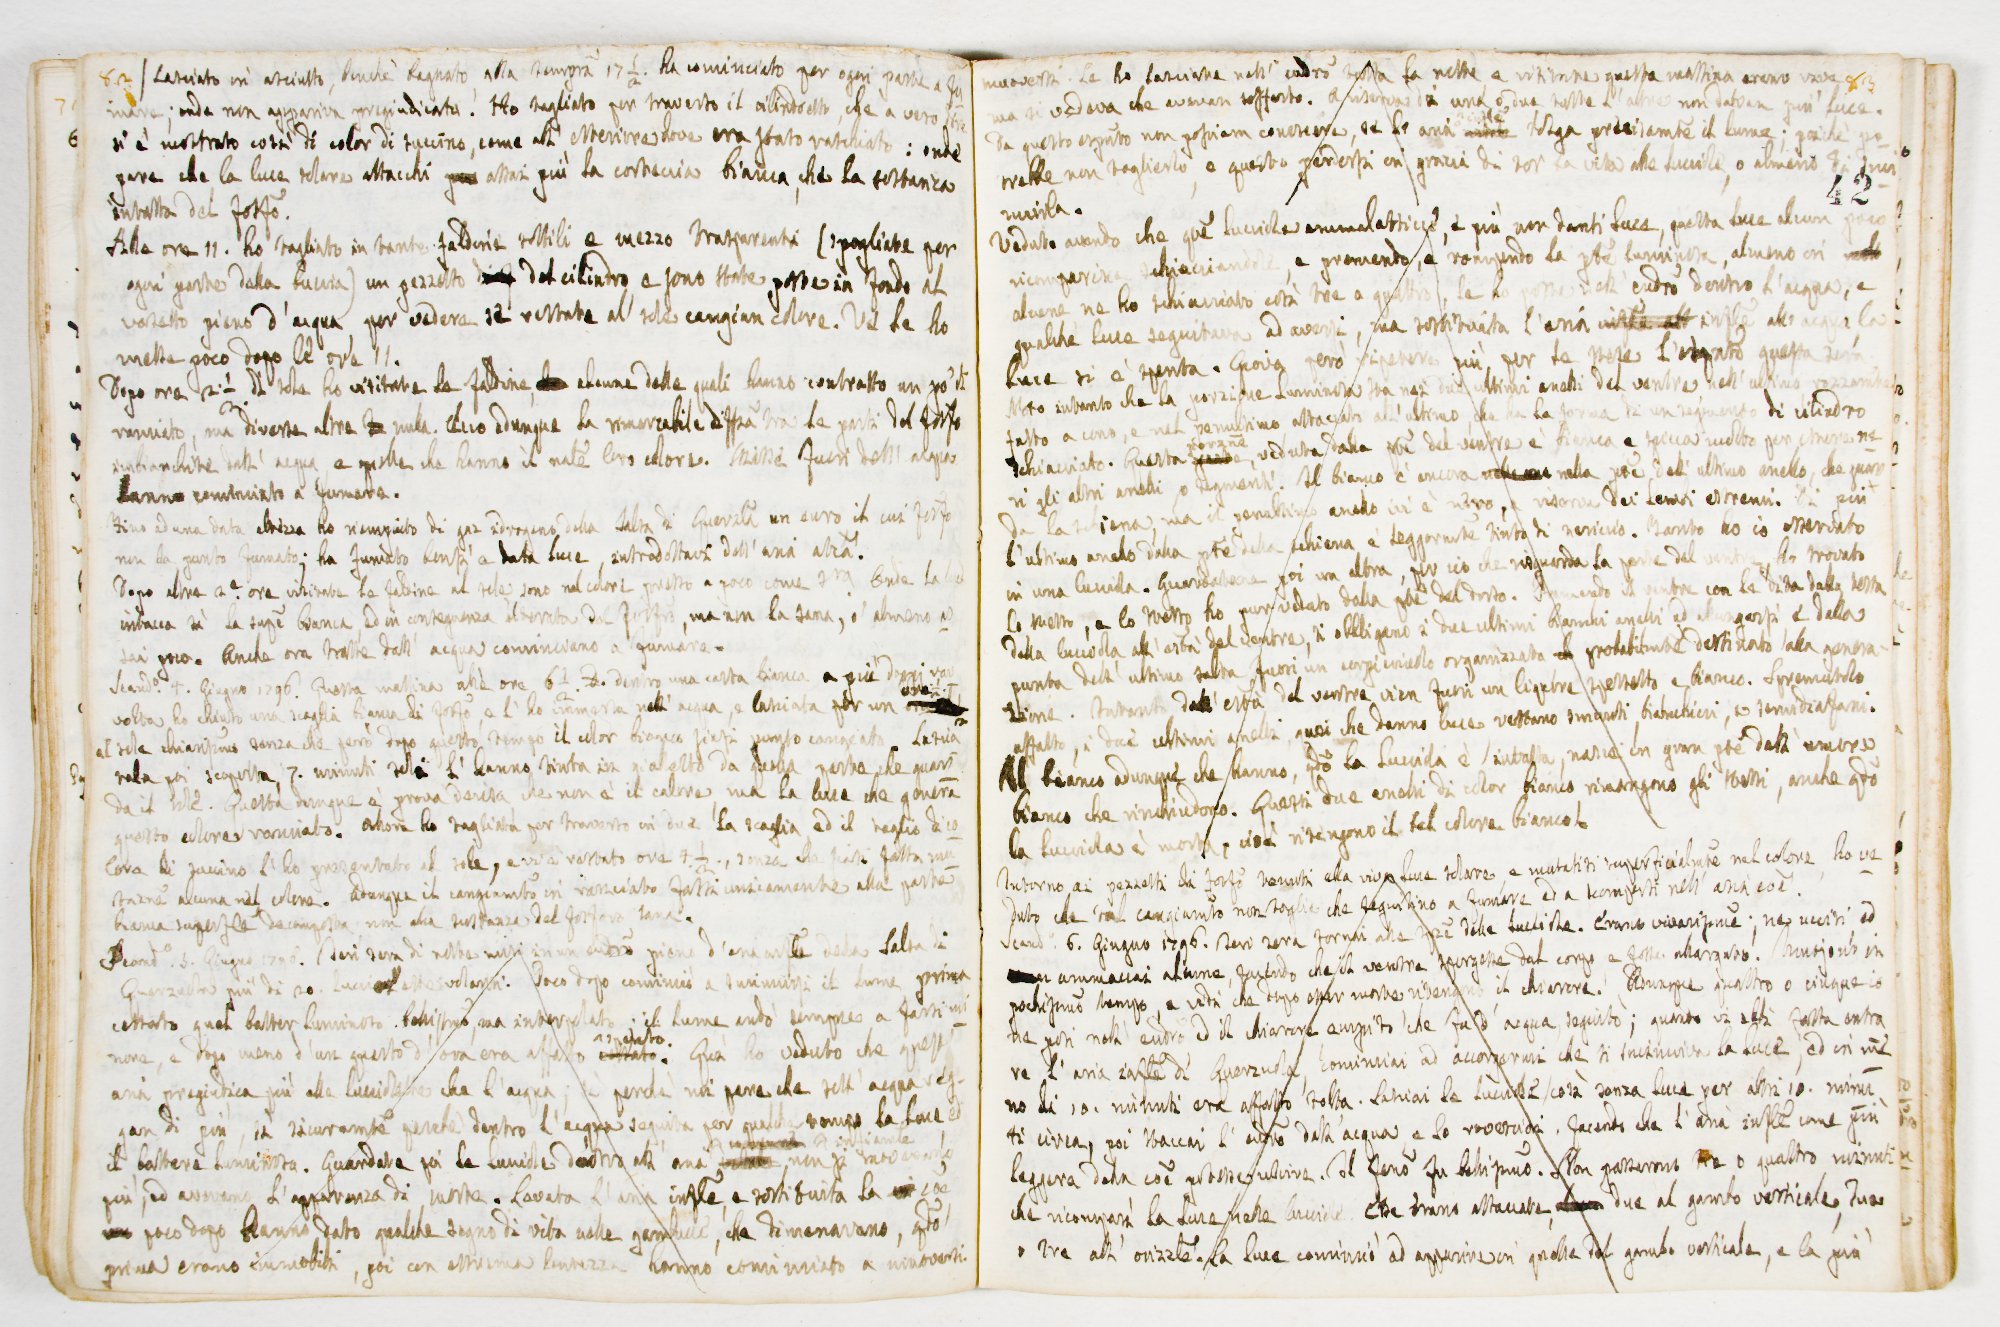 82
Lasciato ivi asciutto, benchè bagnato, alla tempra 17 1/2. ha cominciato per ogni parte a fu
mare; onde non appariva pregiudicato. Ho tagliato per traverso il cilindretto, che a vero
si è mostrato così di color di succino, come all' esteriore dove era stato raschiato: onde
pare che la luce solare attacchi assai più la corteccia bianca, che la sostanza
intatta del fosfo.
Alle ore 11. ho tagliato in tante faldine sottili e mezzo trasparenti (spogliate per
ogni parte della buccia) un pezzetto del cilindro e sono state poste in fondo al
vasetto pieno d'acqua per vedere se restate al sole cangian colore. Ve le ho
messe poco dopo le ore 11.
Dopo ore 2 1/2 di sole ho visitate le faldine, alcune delle quali hanno contratto un po' di
ranciato, ma diverse altre nulla. Ecco adunque la rimarcabile diffza tra le parti del fosfo
imbianchite dall' acqua e quelle che hanno il natle loro colore. Messe fuori dell' acqua
hanno cominciato a fumare.
Fino ad una data altezza ho riempiuto di gaz idrogeno della Salsa di Querzla un euro il cui fosfo
non ha punto fumato; ha fumato bensì e data luce, introdottavi dell' aria atca.
Dopo altre 2e. ore visitate le faldine al sole sono nel colore presso a poco come Onde la luce
intacca sì la supe bianca ed in conseguenza alterata del fosfo, ma non la sana, o almeno as
sai poco. Anche ora tratte dall' acqua cominciano a fumare.
Scand. 4. Giugno 1796. Questa mattina alle ore 6 1/2 dentro una carta bianca a più doppj rav
volta ho chiuso una scaglia bianca di fosfo e l' ho immersa nell' acqua, e lasciata per un ore
al sole chiarissimo senza che però dopo questo tempo il color bianco siasi punto cangiato. Lascia
tala poi scoperta, 7. minuti soli l' hanno tinta in gialetto da quella parte che guar
da il sole. Questa dunque è prova decisa che non è il calore, ma la luce che genera
questo colore ranciato. Allora ho tagliata per traverso in due la scaglia, ed il taglio di co
lore di succino l' ho presentato al sole, e vi è restato ore 4 1/2., senza che siasi fatta mu
tazne alcuna nel colore. Adunque il cangiamto in ranciato fassi unicamente alla parte
bianca superfle decomposta non alla sostanza del fosforo sana.
Scand. 5. Giugno 1796. Ieri sera di notte misi in un eudro pieno d'aria infle della Salsa di
Querzola più di 20. lucciole volanti. Poco dopo cominciò a sminuirsi il lume prima
cessato quel batter luminoso bellissmo, ma interpolato; il lume andò sempre a farsi mi
nore, e dopo meno d'un quarto d' ora era affatto cessato. Quì ho veduto che quest'
aria pregiudica più alle lucciolette che l' acqua; sì perchè mi pare che sott' acqua reg-
gan di più, sì sicuramte perchè dentro l' acqua seguita per qualche tempo la luce ed
il battere luminoso. Guardate poi le lucciole dentro all' aria infiamle non si movevano
più, ed avevano l' apparenza di morte. Levata l' aria infle, e sostituita la coe
poco dopo hanno dato qualche segno di vita nelle gambucce, che dimenavano, qdo
prima erano immobili, poi con estrema lentezza hanno cominciato a muoversi.
83
42
muoversi. Le ho lasciate nell' eudro tutta la notte e visitate questa mattina erano vive
ma si vedeva che avevan sofferto. A riserva di una o due tutte l' altre non davan più luce.
Da questo esprto non possiam conoscere, se l' aria infle tolga precisamte il lume; poichè po
trebbe non toglierlo, e questo perdersi in grazia di tor la vita alle lucciole, o almeno di smi
nuirla.
Veduto avendo che qte lucciole ammalatticie, e più non danti luce, questa luce alcun poco
ricompariva schiacciandole, e premendo, e rompendo la pte luminosa, almeno in
alcune ne ho schiacciato così tre o quattro, le ho poste nell' eudro dentro l' acqua, e
qualche luce seguitava ad aversi, ma sostituita l' aria infle all' acqua la
luce si è spenta. Giova però ripetere più per le stese l' esprto questa sera.
Noto intanto che la porzione luminosa sta nei due ultimi anelli del ventre nell' ultimo rozzamte
fatto a cono, e nel penultimo attaccato all' ultimo, che ha la forma di un segmento di cilindro
schiacciato. Questa porzne, veduta dalla pte del ventre è bianca e spicca molto per essere ne
ri gli altri anelli, o segmenti. Il bianco è ancora nella pte dell' ultimo anello, che guar
da la schiena, ma il penultimo anello ivi è nero, a riserva dei lembi estremi. Di più
l' ultimo anello dalla pte della schiena è leggermte tinto di nericcio. Tanto ho io osservato
in una lucciola. Guardatene poi un altra, per ciò che risguarda la parte del ventre, ho trovato
lo stesso, e lo stesso ho pur veduto dalla pte del dorso. Premendo il ventre con le dita dalla testa
della lucciola all' està del ventre, si obbligano i due ultimi bianchi anelli ad allungarsi e dalla
punta dell' ultimo salta fuori un corpicciuolo organizzato probabilmte destinato alla genera-
zione. Intanto dall' està del ventre vien fuori un liquore spessetto e bianco. Spremutolo
affatto, i due ultimi anelli, quei che danno luce restano smunti, bianchicci, e semidiafani.
Il bianco adunque che hanno, qdo la lucciola è intatta, nasce in gran pte dall' umore
bianco che rinchiudono. Questi due anelli di color bianco rimangono gli stessi, anche qdo
la lucciola è morta, cioè ritengono il tal colore bianco.
Intorno ai pezzetti di fosfo tenuti alla viva luce solare, e mutatisi superficialmte nel colore ho ve
duto che tal cangiamto non toglie che seguitino a fumare ed a scomporsi nell' aria coe.
Scand. 6. Giugno 1796. Ieri sera tornai alle spze delle lucciole. Erano vivacissime; ne uccisi ed
ammaccai alcune, facendo che il ventre sporgesse dal corpo e fosse allargato. Morirono in
pochissmo tempo, e vidi che dopo esser morte ritengono il chiarore. Adunque quattro o cinque io
ne posi nell' eudro ed il chiarore empito che fu d' acqua, seguitò; quando vi ebbi fatta entra
re l' aria infle di Querzuola, cominciai ad accorgermi che si sminuiva la luce, ed in me
no di 10. minuti era affatto tolta. Lasciai le lucciole così senza luce per altri 10. minu
ti circa, poi staccai l' eudro dall' acqua e lo rovesciai, facendo che l' aria infle come più
leggera della coe potesse uscire. Il fenomo fu bellissmo. Non passarono tre o quattro minuti
che ricomparì la luce nelle lucciole. Esse erano attaccate, due al gambo verticale, due
o tre all' orizzle. La luce cominciò ad apparire in quelle del gambo verticale, e la più